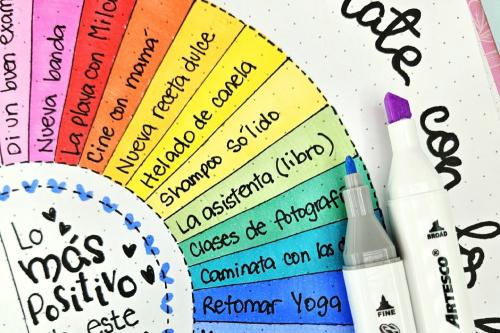 Di un buen exam
Nueva banda
La playa con Milo
Cine con mamá
Nueva receta dulce
Helado de canela
Shampoo sólido
La asistenta (libro)
Clases de fotografí
Caminata con las
Retomar Yoga
Lo
más
Positivo
este
ate
con
la
BROAD
ARTESCO
FINE